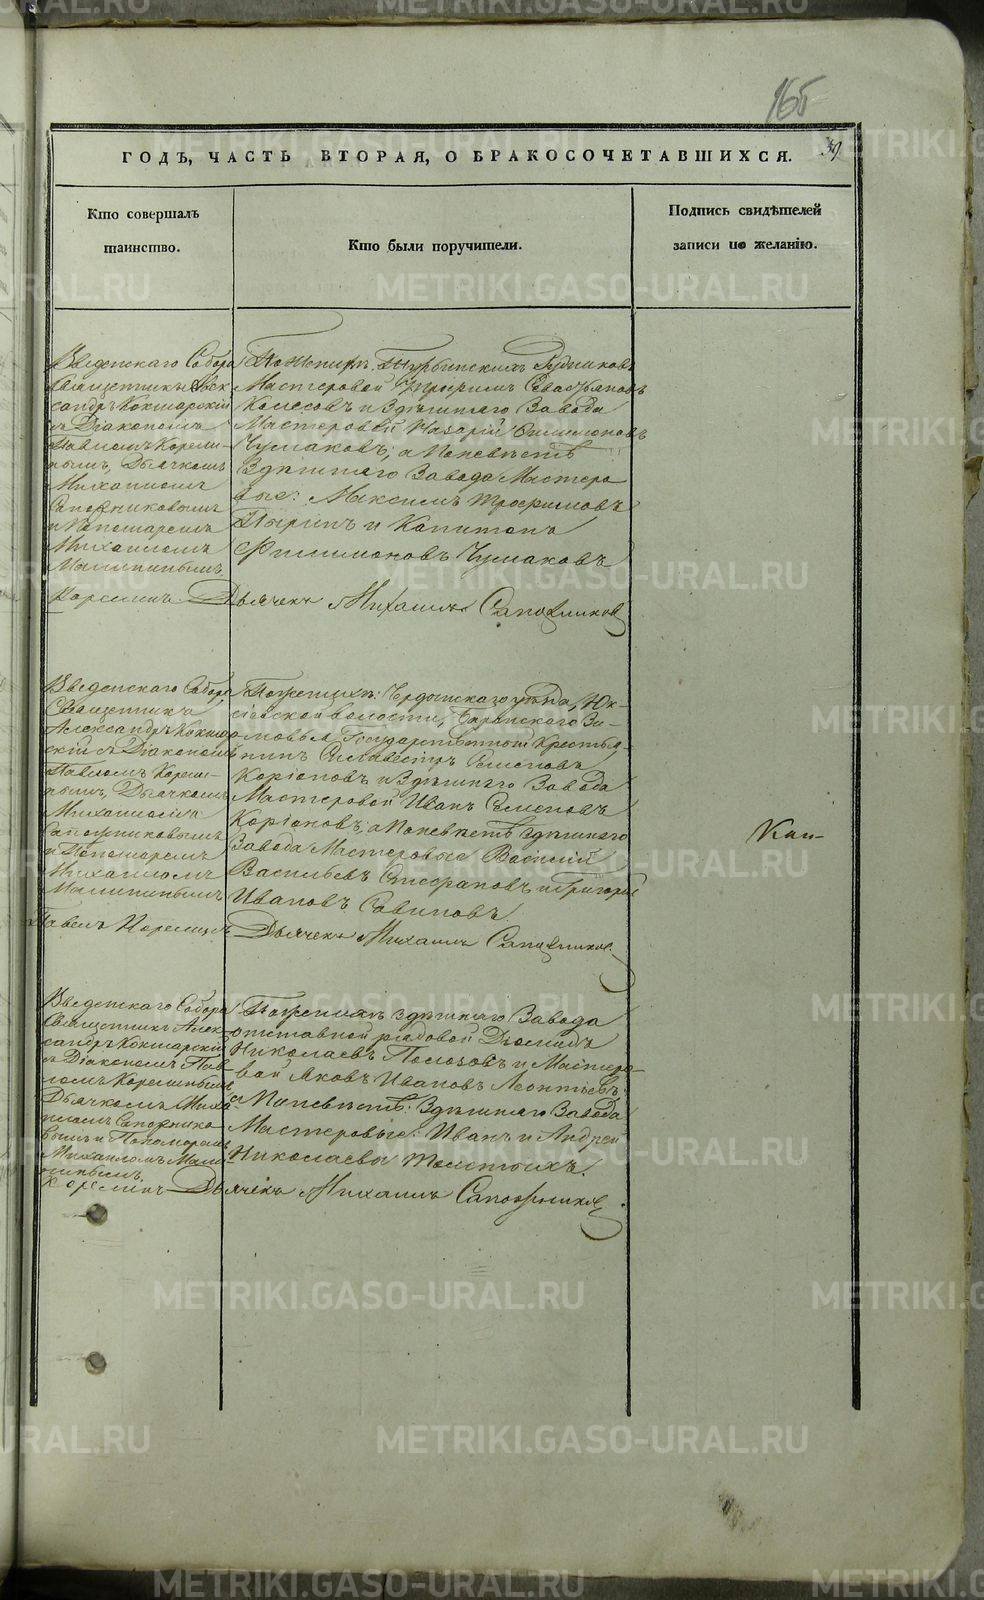 165
39
ГОДЪ, ЧАСТЬ ВТОРАЯ, О БРАКОСОЧЕТАВШИХСЯ.
Кто совершалъ
таинство.
Кто были поручители.
Подпись свидѣтелей
записи по желанію.
Введенскаго Собора
Священникъ Алек
сандръ Кокшарскій
съ Діакономъ
Павломъ Корели-
нымъ, Дьячкомъ
Михаиломъ
Сапожниковымъ
и Пономаремъ
Михаиломъ
Малининымъ.
Корелинъ
По женихѣ: Турьинскихъ Рудниковъ
Мастеровой
Колесовъ и Здѣшняго Завода
Мастеровой Назарій Филимоновъ
Чумаковъ, а по невѣстѣ
Здѣшняго Завода Мастеро
вые: Максимъ Трофимовъ
и Капитонъ
Филимоновъ Чумаковъ
Дьячекъ Михаилъ Сапожниковъ
Введенскаго Собора
Священникъ
Александръ Кокшар
скій съ Діакономъ
Павломъ Корели-
нымъ, Дьячкомъ
Михаиломъ
Сапожниковымъ
и Пономаремъ
Михаиломъ
Малининымъ
Павелъ Корелинъ
По женихѣ: Чердынскаго уѣзда, Юк-
сѣевской волости,
Государственной Крестья-
нинъ Сильвестръ Семеновъ
и Здѣшняго Завода
Мастеровой Иванъ Семеновъ
а по невѣстѣ Здѣшняго
Завода Мастеровые Василій
Васильевъ и Григорій
Ивановъ Савиновъ.
Дьячекъ Михаилъ Сапожниковъ
Введенскаго Собора
Священникъ Алек
сандръ Кокшарскій
съ Діакономъ Пав
ломъ Корелинымъ
Дьячкомъ Миха
иломъ Сапожнико
вымъ и Пономаремъ
Михаиломъ Мали
нинымъ.
Корелинъ
По женихѣ здѣшняго Завода
отставной рядовой Діомидъ
Николаевъ Полозовъ и Мастеро-
вой Яковъ Ивановъ Леонтьевъ
а по невѣстѣ: Здѣшняго Завода
Мастеровые: Иванъ и Андрей
Николаевы Толстыхъ.
Дьячекъ Михаилъ Сапожниковъ
METRIKI.GASO-URAL.RU